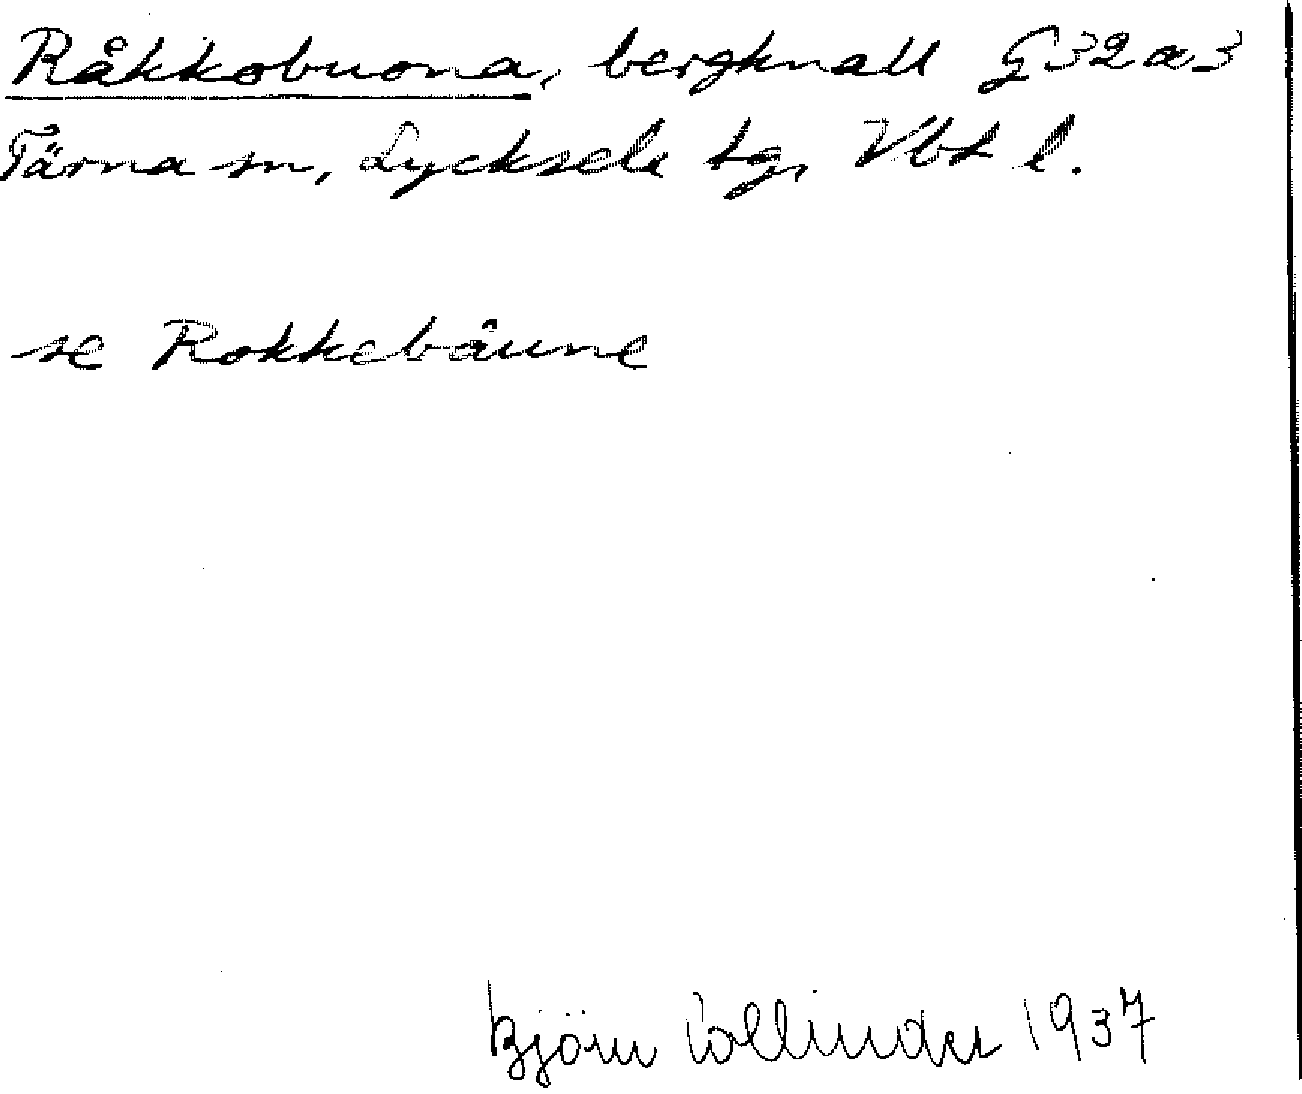 Råkkobuona, bergknall G32æ3
Tärna sn, Lycksele tg, Vbt l.
se Rokkebåune
Björn Collinder 1937